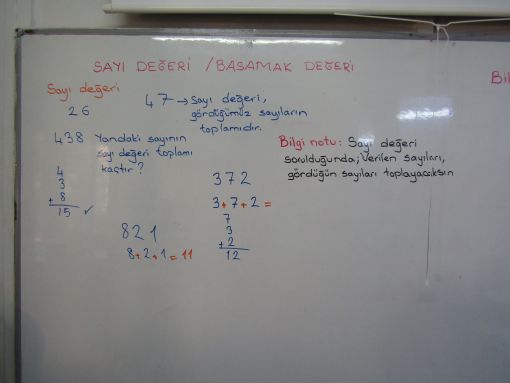 SAYI DEĞERİ / BASAMAK DEĞERİ
Bil
Sayı değeri
26
47 → Sayı değeri,
gördüğümüz sayıların
toplamıdır.
438 Yandaki sayının
sayı değeri toplamı
kaçtır?
4
3
+ 8
15 ✓
821
8+2+1=11
372
3+7+2=
7
3
+ 2
12
Bilgi notu: Sayı değeri
sorulduğunda; verilen sayıları,
gördüğün sayıları toplayacaksın